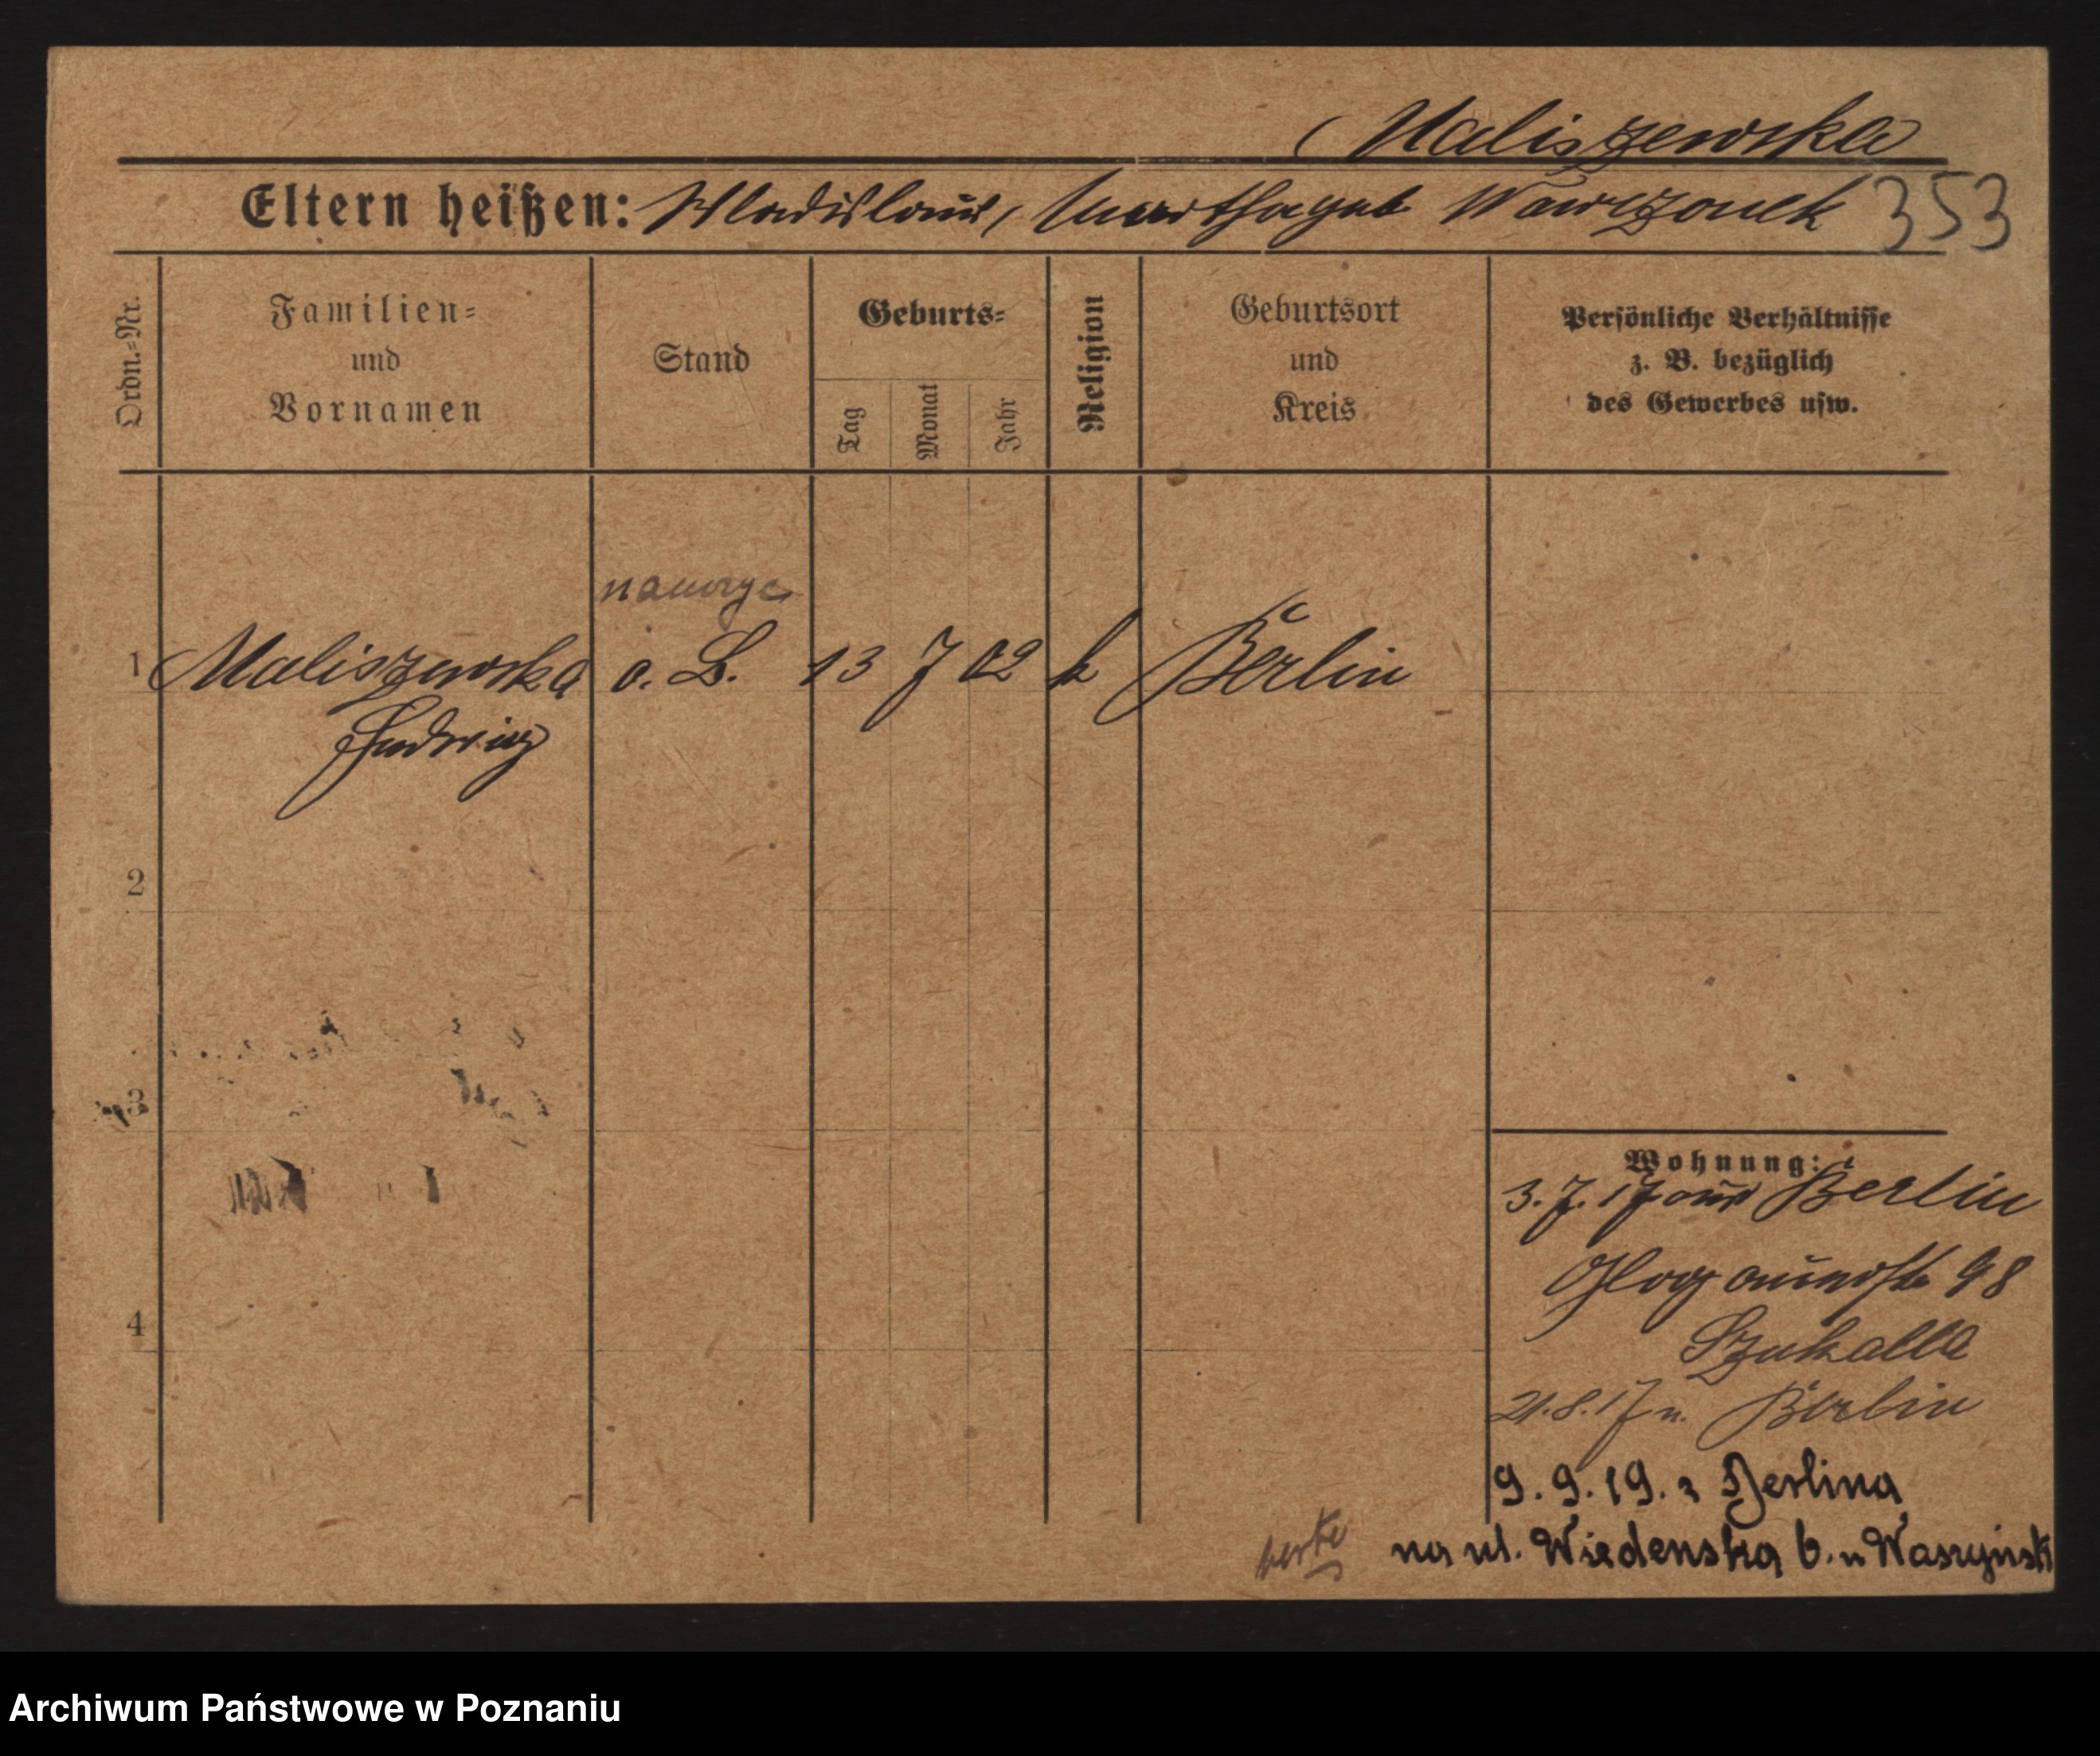 Maliszewska
Eltern heißen: Wladislaus, Martha geb Wawrzonek 353
Ordn.-Nr.
Familien-
und
Vornamen
Stand
Geburts-
Tag
Monat
Jahr
Religion
Geburtsort
und
Kreis
Persönliche Verhältnisse
z. B. bezüglich
des Gewerbes usw.
1 Maliszewska o. B. 13 7 02 k Berlin
Hedwig
2
3
4
Wohnung:
3. 7. 17 aus Berlin
Glogauerstr 98
Szukalla
21. 8. 17 n. Berlin
9. 9. 19. z Berlina
na ul. Wiedenska 6. u Waszyńsk
verte
Archiwum Państwowe w Poznaniu